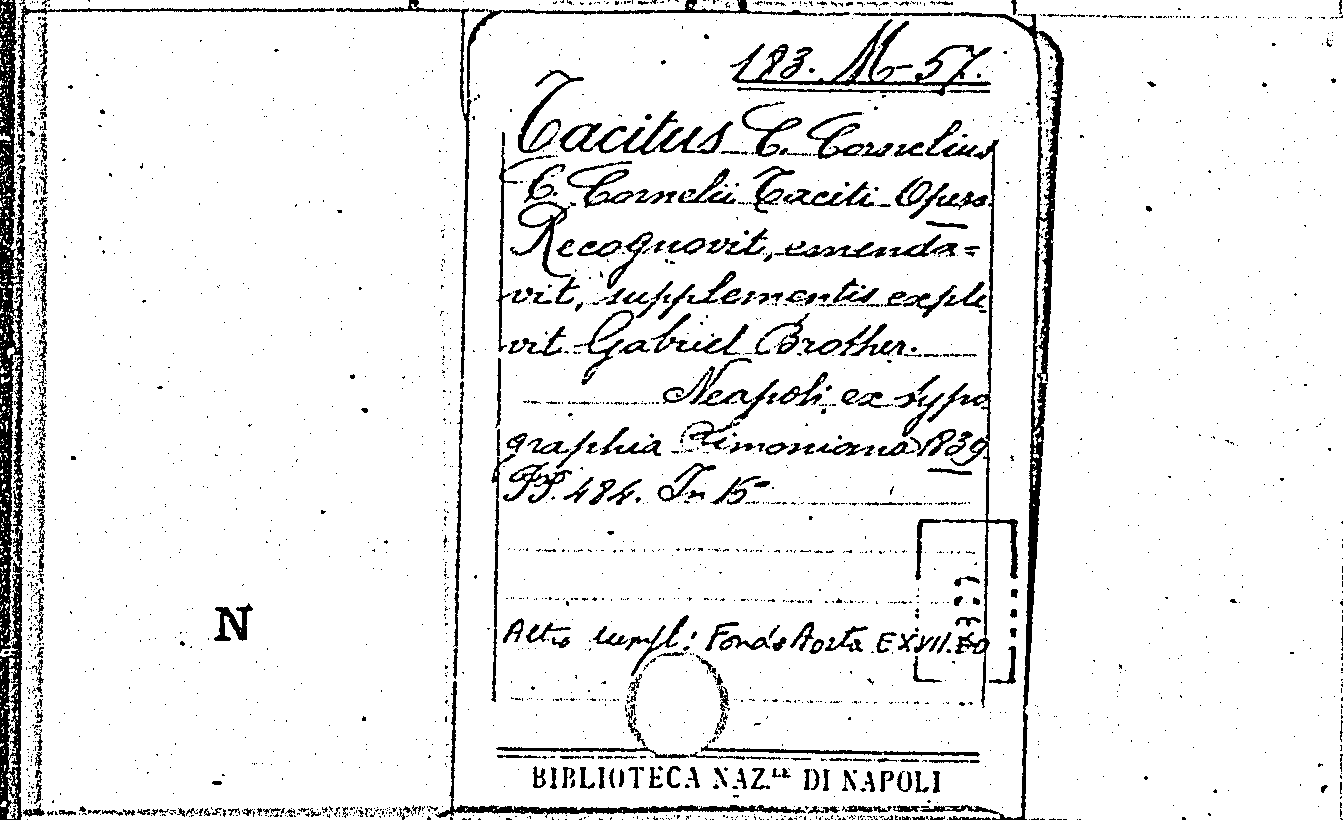 183. M-57.
Tacitus C. Cornelius
C. Cornelii Taciti Opera
Recognovit, emenda=
vit, supplementis exple
vit Gabriel Brother.
Neapoli, ex typo
graphia Simoniana 1839
PP. 484. In 15º
Altro esempl: Fondo Aosta E XVII.
N
BIBLIOTECA NAZ.LE DI NAPOLI